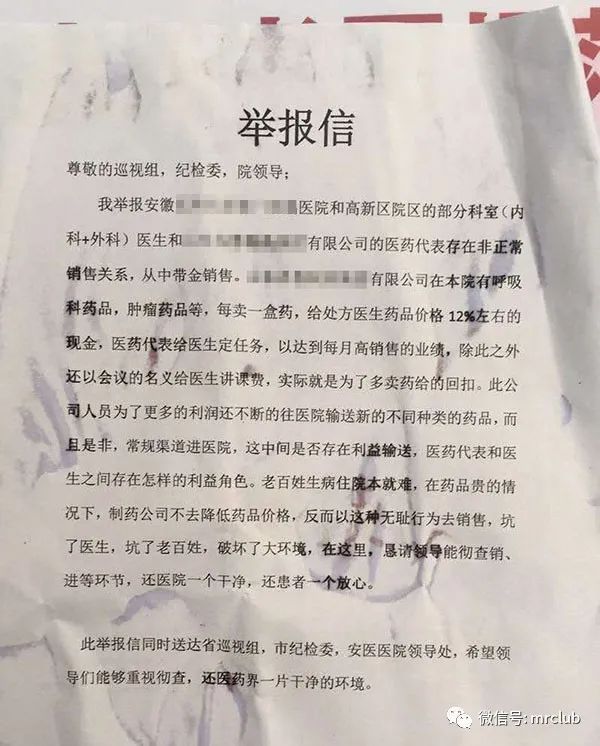 举报信
尊敬的巡视组，纪检委，院领导；
我举报安徽 医院和高新区院区的部分科室（内
科+外科）医生和 有限公司的医药代表存在非正常
销售关系，从中带金销售。 有限公司在本院有呼吸
科药品，肿瘤药品等，每卖一盒药，给处方医生药品价格 12%左右的
现金，医药代表给医生定任务，以达到每月高销售的业绩，除此之外
还以会议的名义给医生讲课费，实际就是为了多卖药给的回扣。此公
司人员为了更多的利润还不断的往医院输送新的不同种类的药品，而
且是非，常规渠道进医院，这中间是否存在利益输送，医药代表和医
生之间存在怎样的利益角色。老百姓生病住院本就难，在药品贵的情
况下，制药公司不去降低药品价格，反而以这种无耻行为去销售，坑
了医生，坑了老百姓，破坏了大环境，在这里，恳请领导能彻查销、
进等环节，还医院一个干净，还患者一个放心。
此举报信同时送达省巡视组，市纪检委，安医医院领导处，希望领
导们能够重视彻查，还医药界一片干净的环境。
微信号: mrclub